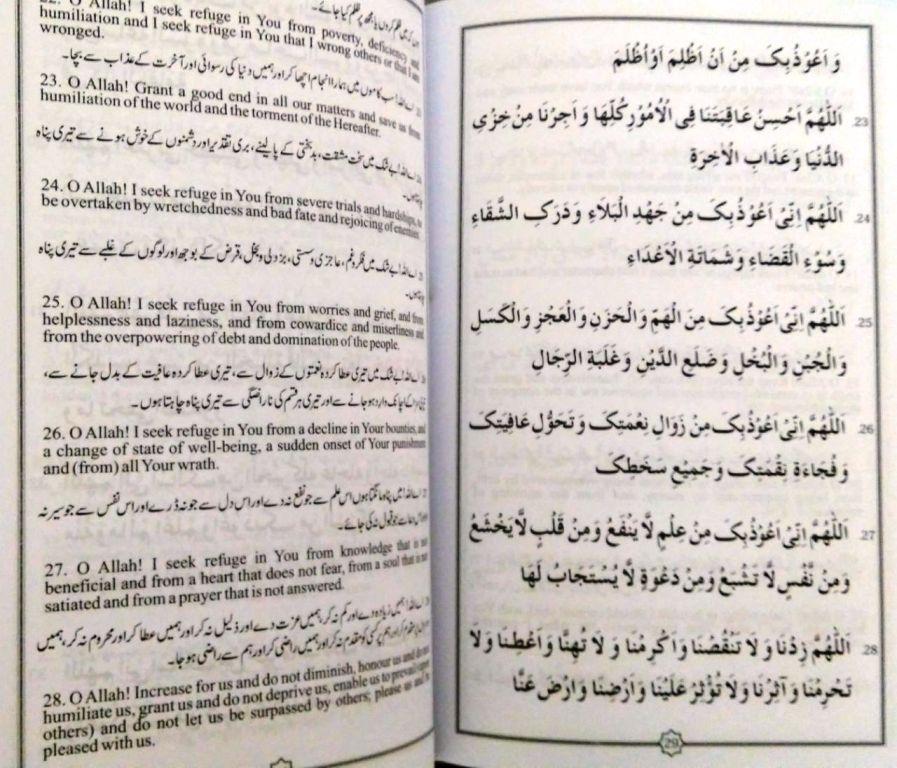 22. O Allah! I seek refuge in You from poverty, deficiency and
humiliation and I seek refuge in You that I wrong others or that I am
wronged.
اے اللہ! سب کاموں میں ہمارا انجام اچھا کر اور ہمیں دنیا کی رسوائی اور آخرت کے عذاب سے بچا۔
23. O Allah! Grant a good end in all our matters and save us from
humiliation of the world and the torment of the Hereafter.
اے اللہ! بے شک میں سخت مشقت، بدبختی کے پا لینے، بری تقدیر اور دشمنوں کے خوش ہونے سے تیری پناہ
24. O Allah! I seek refuge in You from severe trials and hardships, to
be overtaken by wretchedness and bad fate and rejoicing of enemies.
اے اللہ! بے شک میں فکر و غم، عاجزی و سستی، بزدلی و بخل، قرض کے بوجھ اور لوگوں کے غلبے سے تیری پناہ
25. O Allah! I seek refuge in You from worries and grief, and from
helplessness and laziness, and from cowardice and miserliness and
from the overpowering of debt and domination of the people.
اے اللہ! بے شک میں تیری عطا کردہ نعمتوں کے زوال سے، تیری عطا کردہ عافیت کے بدل جانے سے،
اچانک وارد ہو جانے سے اور تیری ہر قسم کی ناراضگی سے تیری پناہ چاہتا ہوں۔
26. O Allah! I seek refuge in You from a decline in Your bounties, and
a change of state of well-being, a sudden onset of Your punishment
and (from) all Your wrath.
اے اللہ! میں پناہ مانگتا ہوں اس علم سے جو نفع نہ دے اور اس دل سے جو نہ ڈرے اور اس نفس سے جو سیر نہ
جو قبول نہ کی جائے۔
27. O Allah! I seek refuge in You from knowledge that is not
beneficial and from a heart that does not fear, from a soul that is not
satiated and from a prayer that is not answered.
اے اللہ! ہمیں زیادہ دے اور کم نہ کر، ہمیں عزت دے اور ذلیل نہ کر اور ہمیں عطا کر اور محروم نہ کر، ہمیں
کسی کو مقدم نہ کر اور ہمیں راضی کر اور ہم سے راضی ہو جا۔
28. O Allah! Increase for us and do not diminish, honour us and do not
humiliate us, grant us and do not deprive us, enable us to prevail (upon
others) and do not let us be surpassed by others, please us and be
pleased with us.
وَ اَعُوْذُبِکَ مِنْ اَنْ اَظْلِمَ اَوْ اُظْلَمَ
23. اَللّٰهُمَّ اَحْسِنْ عَاقِبَتَنَا فِی الْاُمُوْرِ کُلِّهَا وَ اَجِرْنَا مِنْ خِزْیِ
الدُّنْیَا وَ عَذَابِ الْاٰخِرَةِ
24. اَللّٰهُمَّ اِنِّیْ اَعُوْذُبِکَ مِنْ جَهْدِ الْبَلَاءِ وَ دَرَکِ الشَّقَاءِ
وَ سُوْءِ الْقَضَاءِ وَ شَمَاتَةِ الْاَعْدَاءِ
25. اَللّٰهُمَّ اِنِّیْ اَعُوْذُبِکَ مِنَ الْهَمِّ وَ الْحَزَنِ وَ الْعَجْزِ وَ الْکَسَلِ
وَ الْجُبْنِ وَ الْبُخْلِ وَ ضَلَعِ الدَّیْنِ وَ غَلَبَةِ الرِّجَالِ
26. اَللّٰهُمَّ اِنِّیْ اَعُوْذُبِکَ مِنْ زَوَالِ نِعْمَتِکَ وَ تَحَوُّلِ عَافِیَتِکَ
وَ فُجَاءَةِ نِقْمَتِکَ وَ جَمِیْعِ سَخَطِکَ
27. اَللّٰهُمَّ اِنِّیْ اَعُوْذُبِکَ مِنْ عِلْمٍ لَّا یَنْفَعُ وَ مِنْ قَلْبٍ لَّا یَخْشَعُ
وَ مِنْ نَّفْسٍ لَّا تَشْبَعُ وَ مِنْ دَعْوَةٍ لَّا یُسْتَجَابُ لَهَا
28. اَللّٰهُمَّ زِدْنَا وَ لَا تَنْقُصْنَا وَ اَکْرِمْنَا وَ لَا تُهِنَّا وَ اَعْطِنَا وَ لَا
تَحْرِمْنَا وَ آثِرْنَا وَ لَا تُؤْثِرْ عَلَیْنَا وَ اَرْضِنَا وَ ارْضَ عَنَّا
29